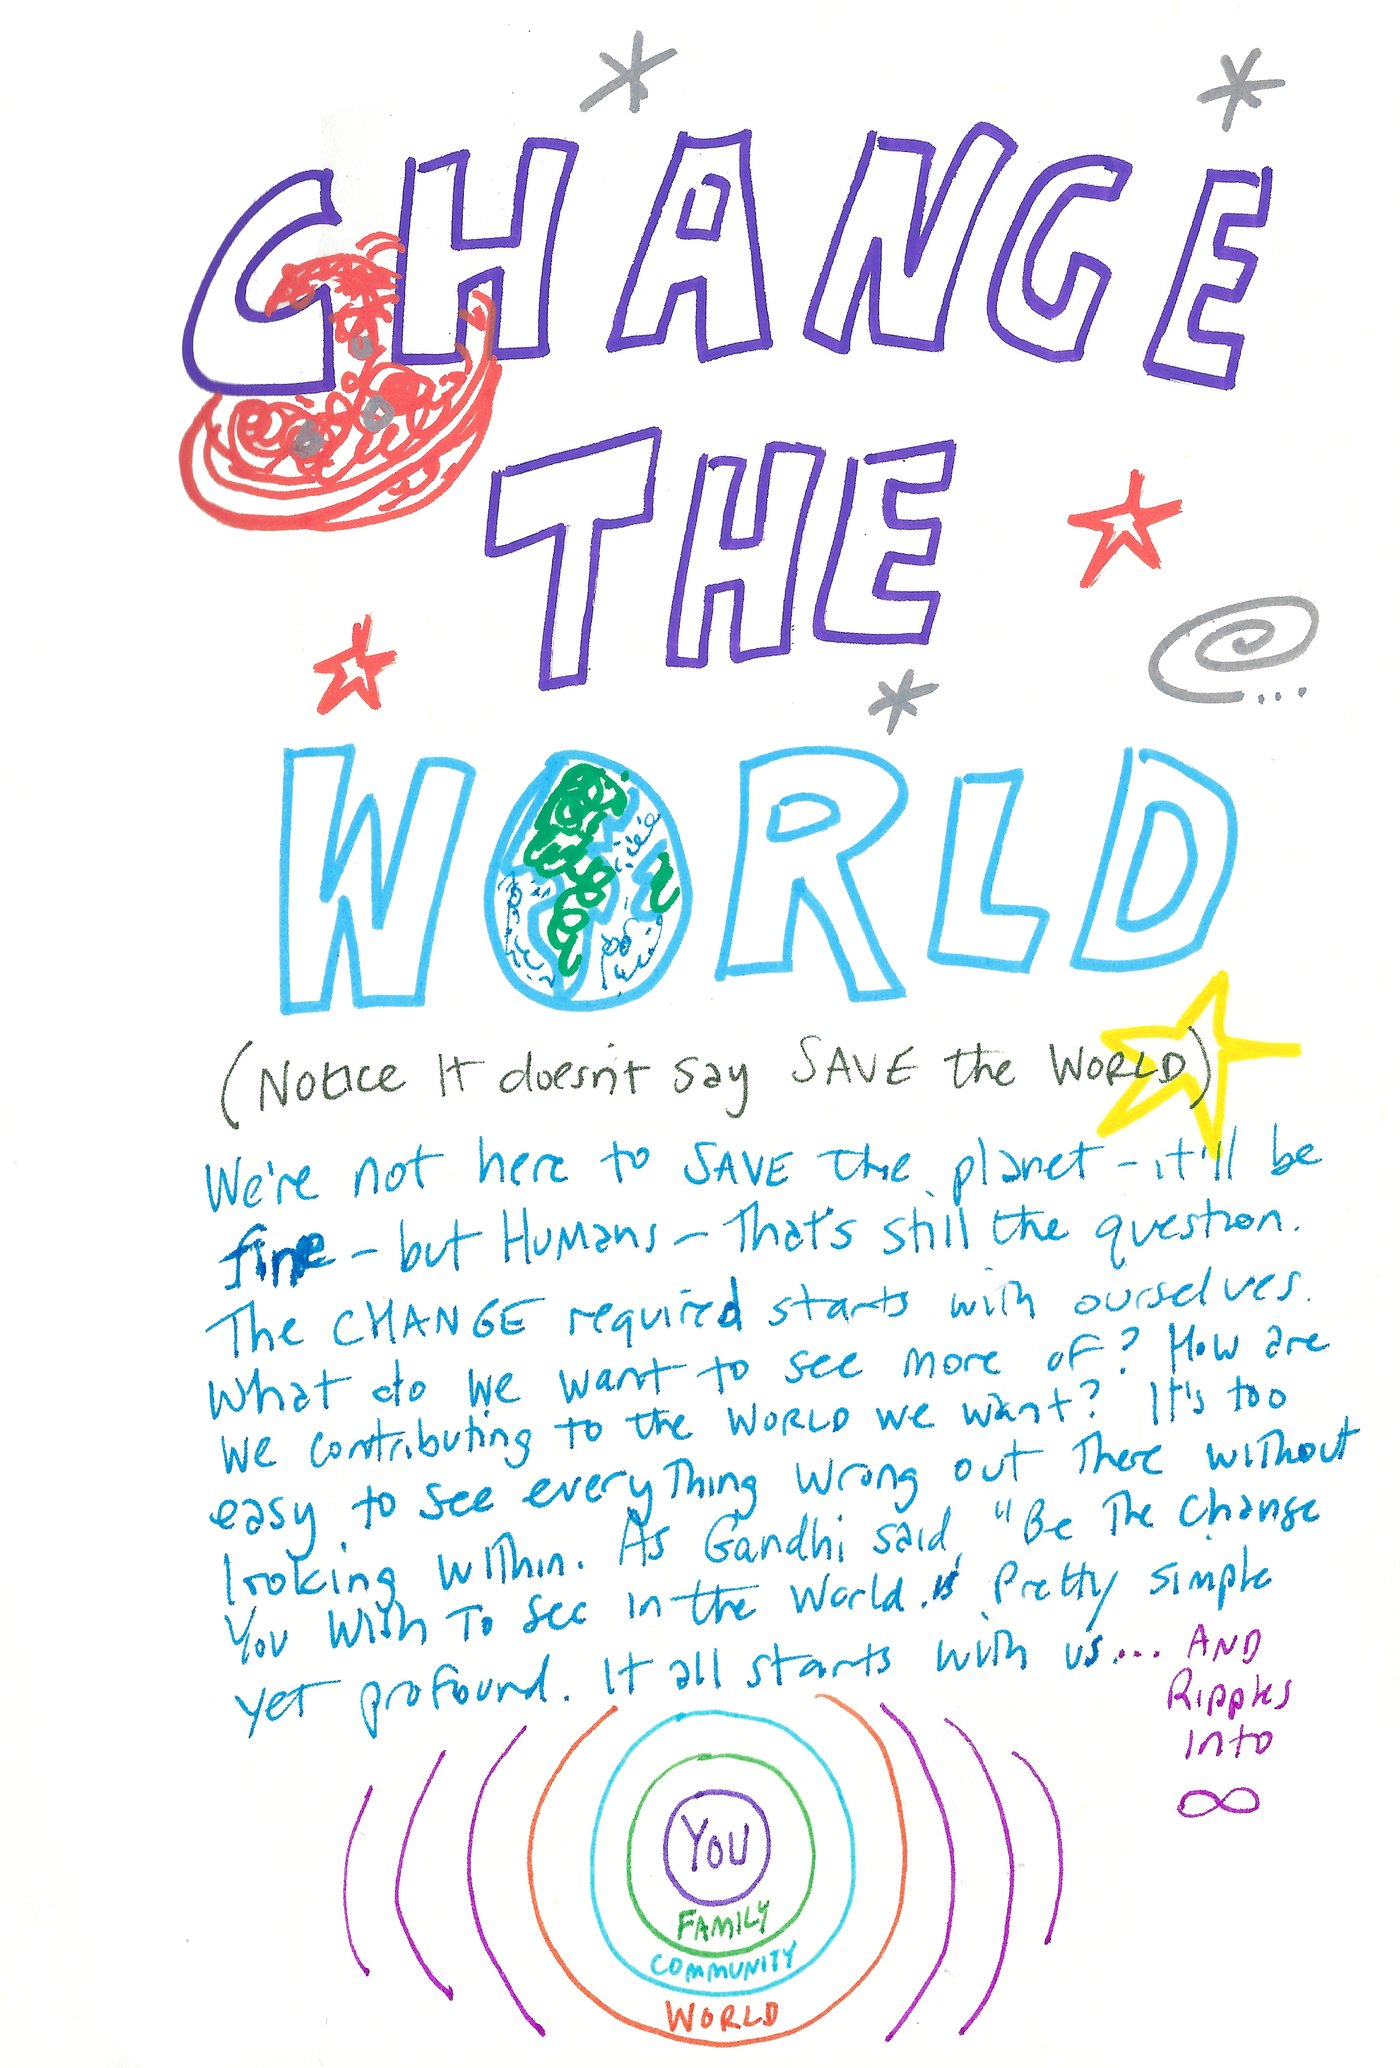 CHANGE
THE
WORLD
(Notice It doesn't say SAVE the WORLD)
We're not here to SAVE the planet - it'll be
fine - but Humans - That's still the question.
The CHANGE required starts with ourselves.
What do we want to see more of? How are
we contributing to the WORLD we want? It's too
easy to see everything wrong out there without
looking within. As Gandhi said, "Be The Change
You Wish To See in the World." Pretty simple
yet profound. It all starts with us... AND
Ripples
Into
∞
YOU
FAMILY
COMMUNITY
WORLD